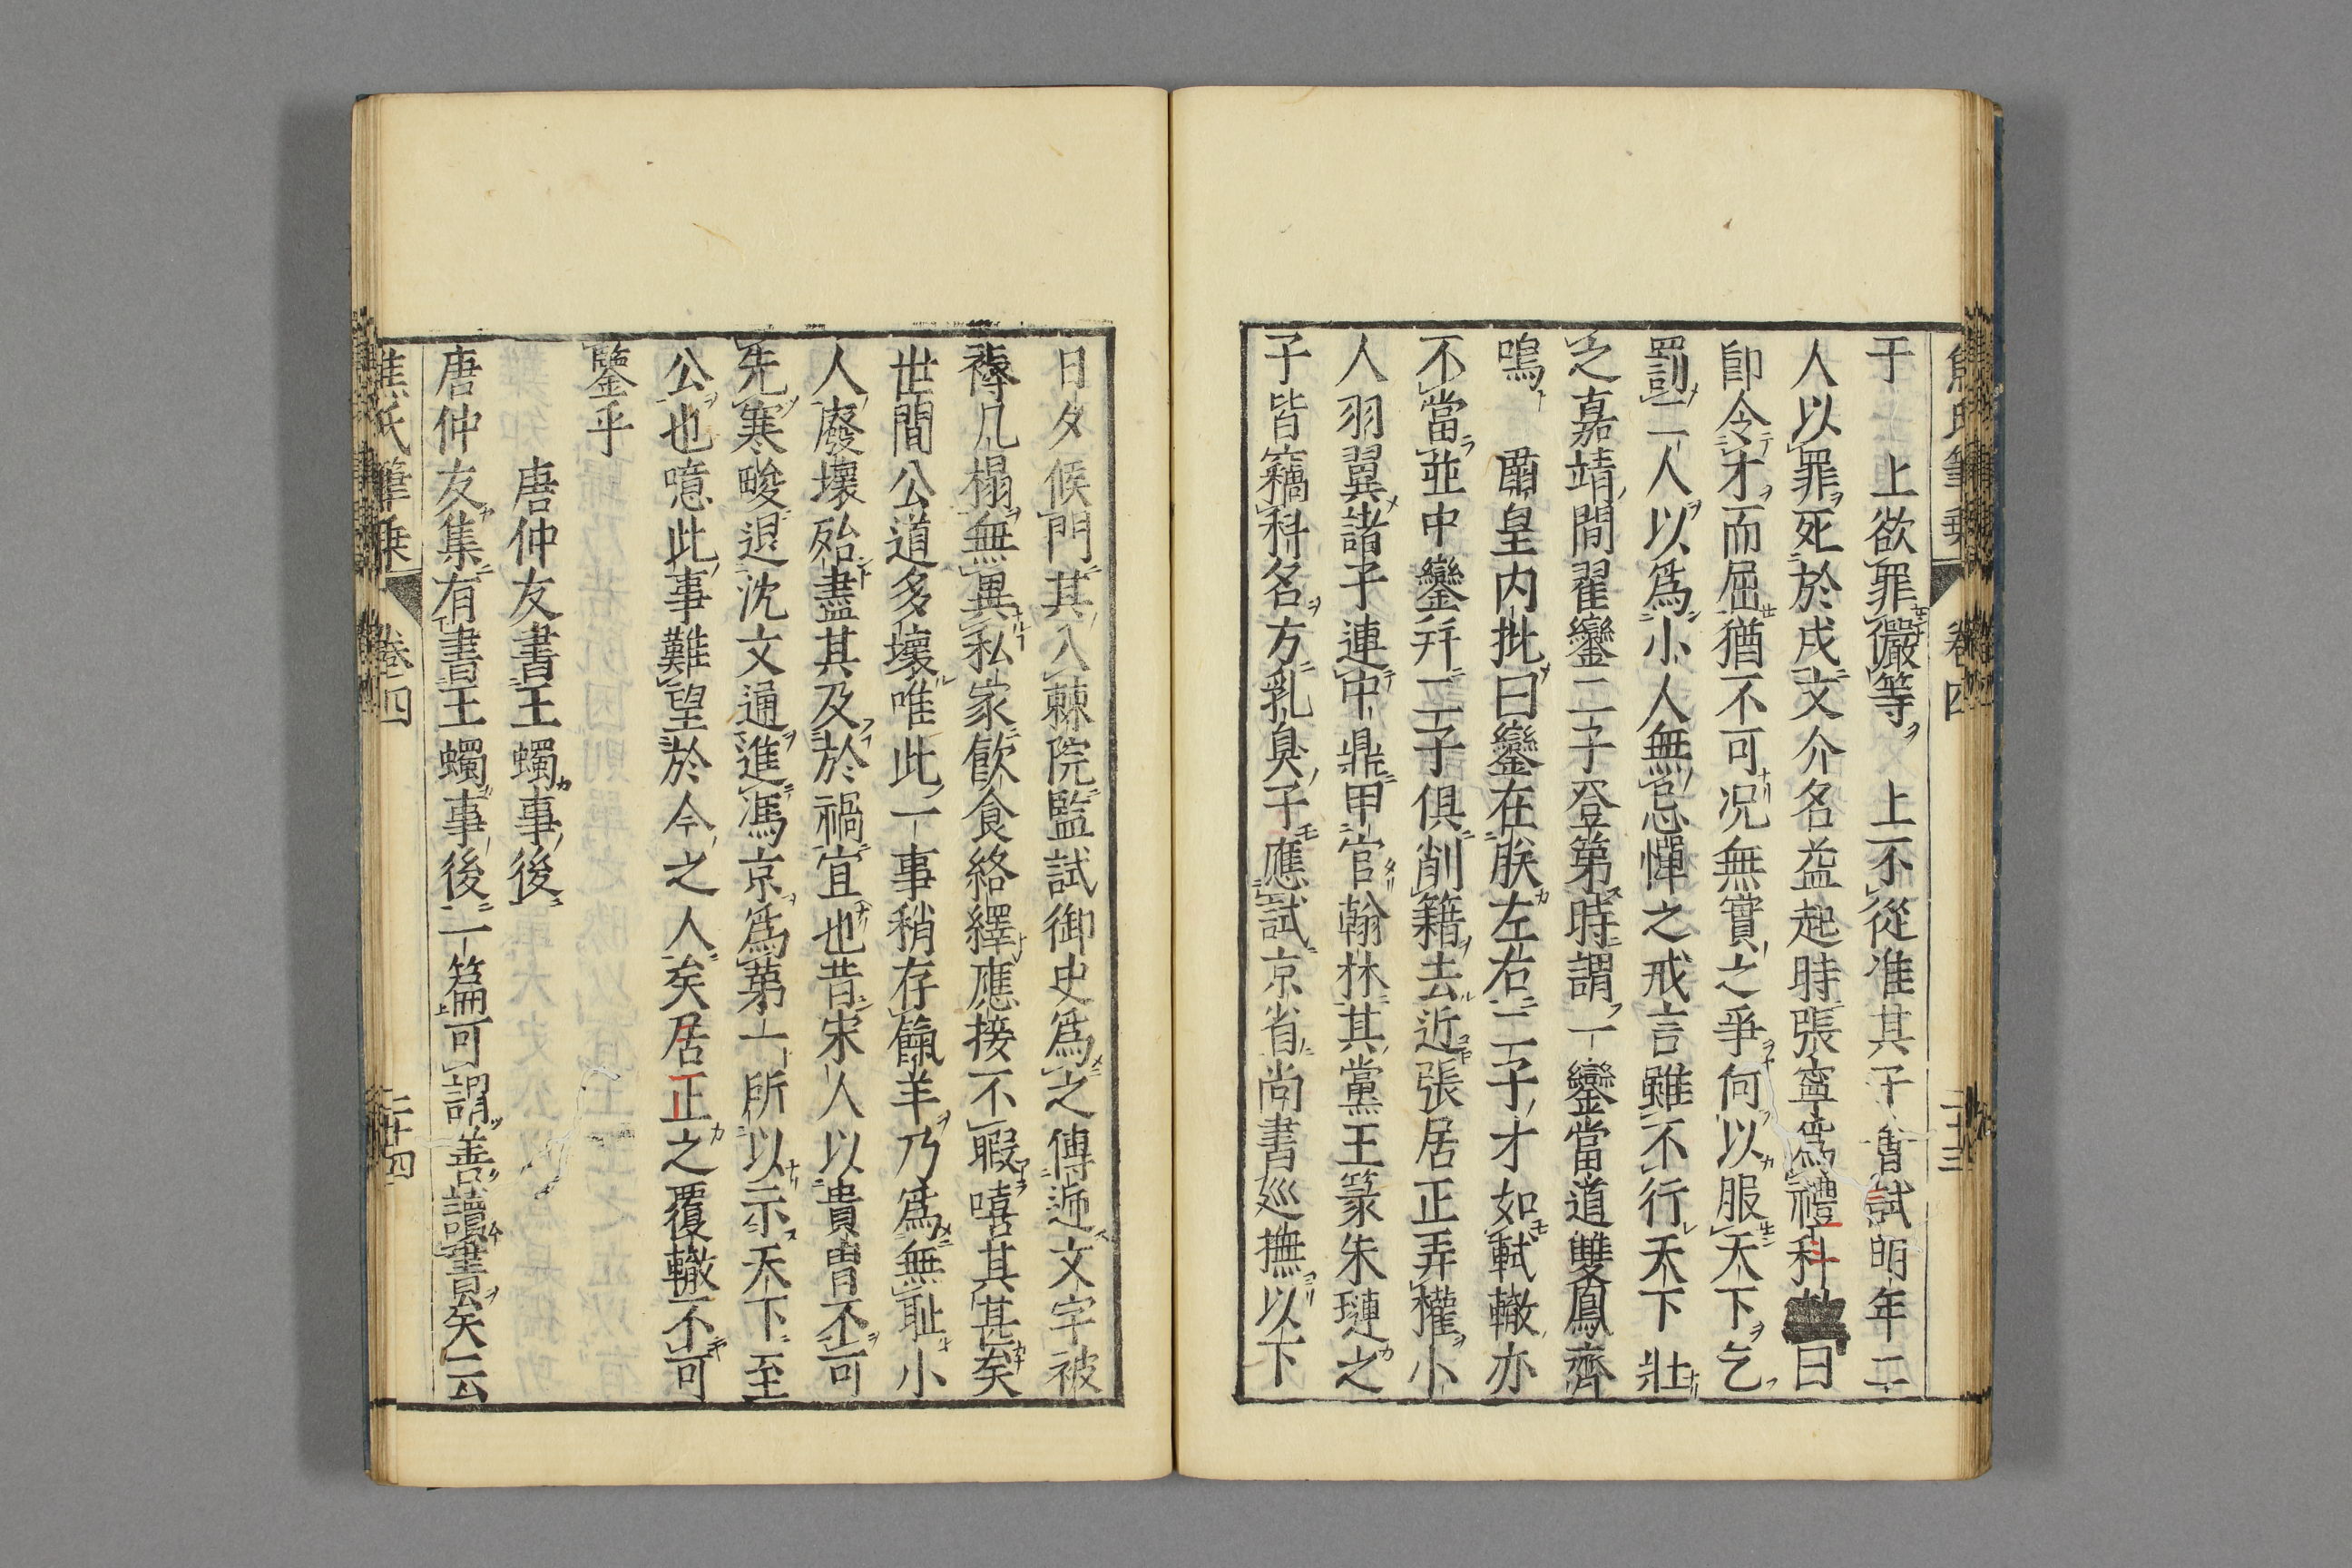 焦氏筆乗 卷四 二十三
于 上欲罪儼等 上不從准其子會試明年二
人以罪死於戍文介名益起時張寧為禮科曰
卽令才而屈猶不可况無實之爭何以服天下乞
罰二人以爲小人無忌憚之戒言雖不行天下壯
之嘉靖間翟鑾二子登第時謂一鑾當道雙鳳齊
鳴 肅皇内批曰鑾在朕左右二子才如軾轍亦
不當並中鑾幷二子俱削籍去近張居正弄權小
人羽翼諸子連中鼎甲官翰林其黨王篆朱璉之
子皆竊科名方乳臭子應試京省尚書廵撫以下
日夕候門其入棘院監試御史爲之傳遞文字被
褥几榻無異私家飮食絡繹應接不暇嘻其甚矣
世間公道多壞唯此一事稍存餼羊乃爲無恥小
人廢壞殆盡其及於禍宜也昔宋人以貴冑不可
先寒畯退沈文通進馮京爲第一所以示天下至
公也噫此事難望於今之人矣居正之覆轍不可
鑒乎
唐仲友書王蠋事後
唐仲友集有書王蠋事後二篇可謂善讀書矣云
焦氏筆乗 卷四 二十四